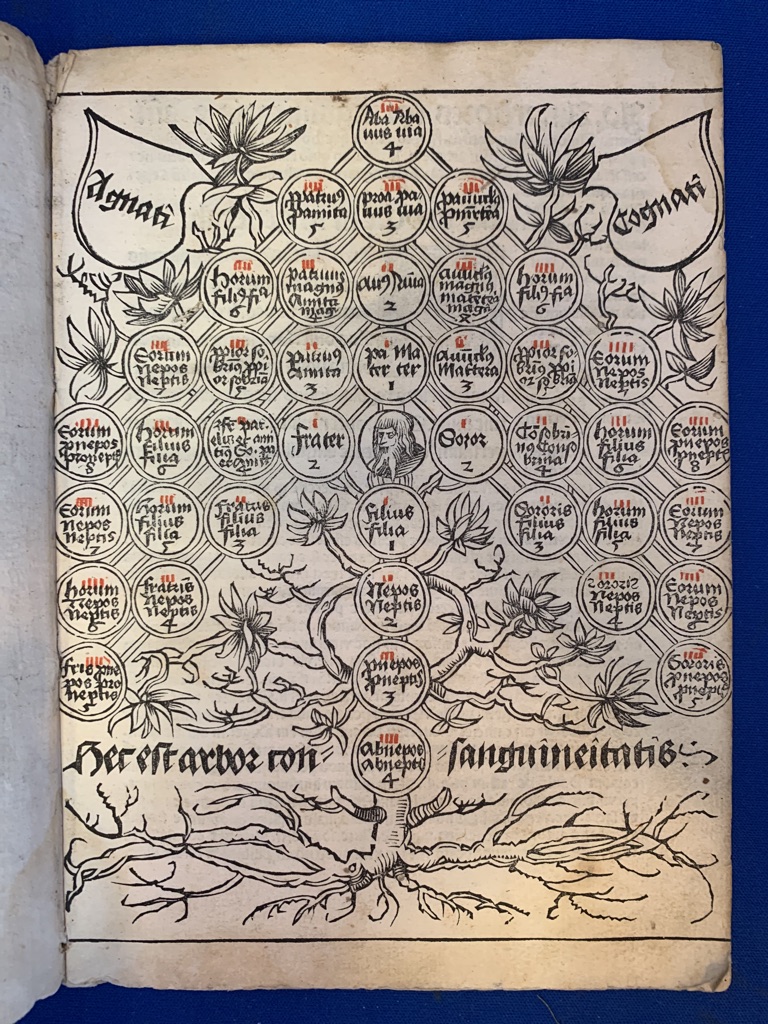 Agnati
Cognati
Aba Aba
uus uia
4
ppatruꝰ
pamita
5
proa pa
uus uia
3
pauūclꝰ
5
horum
filiꝰ fia
6
patruus
magnus
Amita
mag
auꝰ Auia
2
magnꝰ
matertera
magͣ
horum
filiꝰ fia
6
Eorum
Nepos
Neptis
7
ppior so
brinꝰ ppi
or sobria
5
patruꝰ
Amita
3
pa Ma
ter ter
1
Auūclꝰ
Mattera
3
ppior so
brinꝰ ppi
or sobria
Eorum
Nepos
Neptis
7
Eorum
pnepos
proneptis
8
horum
filius
filia
6
Frater
2
Soror
2
Cōsobri
nꝰ Conso
brina
4
horum
filius
filia
6
Eorum
pnepos
pneptis
8
Eorum
Nepos
Neptis
7
horum
filius
filia
5
Fratris
filius
filia
3
filius
filia
1
Sororis
filius
filia
3
horum
filius
filia
5
Eorum
Nepos
Neptis
horum
Nepos
Neptis
6
fratris
Nepos
Neptis
4
Nepos
Neptis
2
sororis
Nepos
Neptis
4
Eorum
Nepos
Neptis
6
fris pne
pos pro
neptis
5
pnepos
pneptis
3
Sororis
pnepos
pneptis
5
Abnepos
Abneptis
4
Hec est arbor con⸗ sanguineitatis